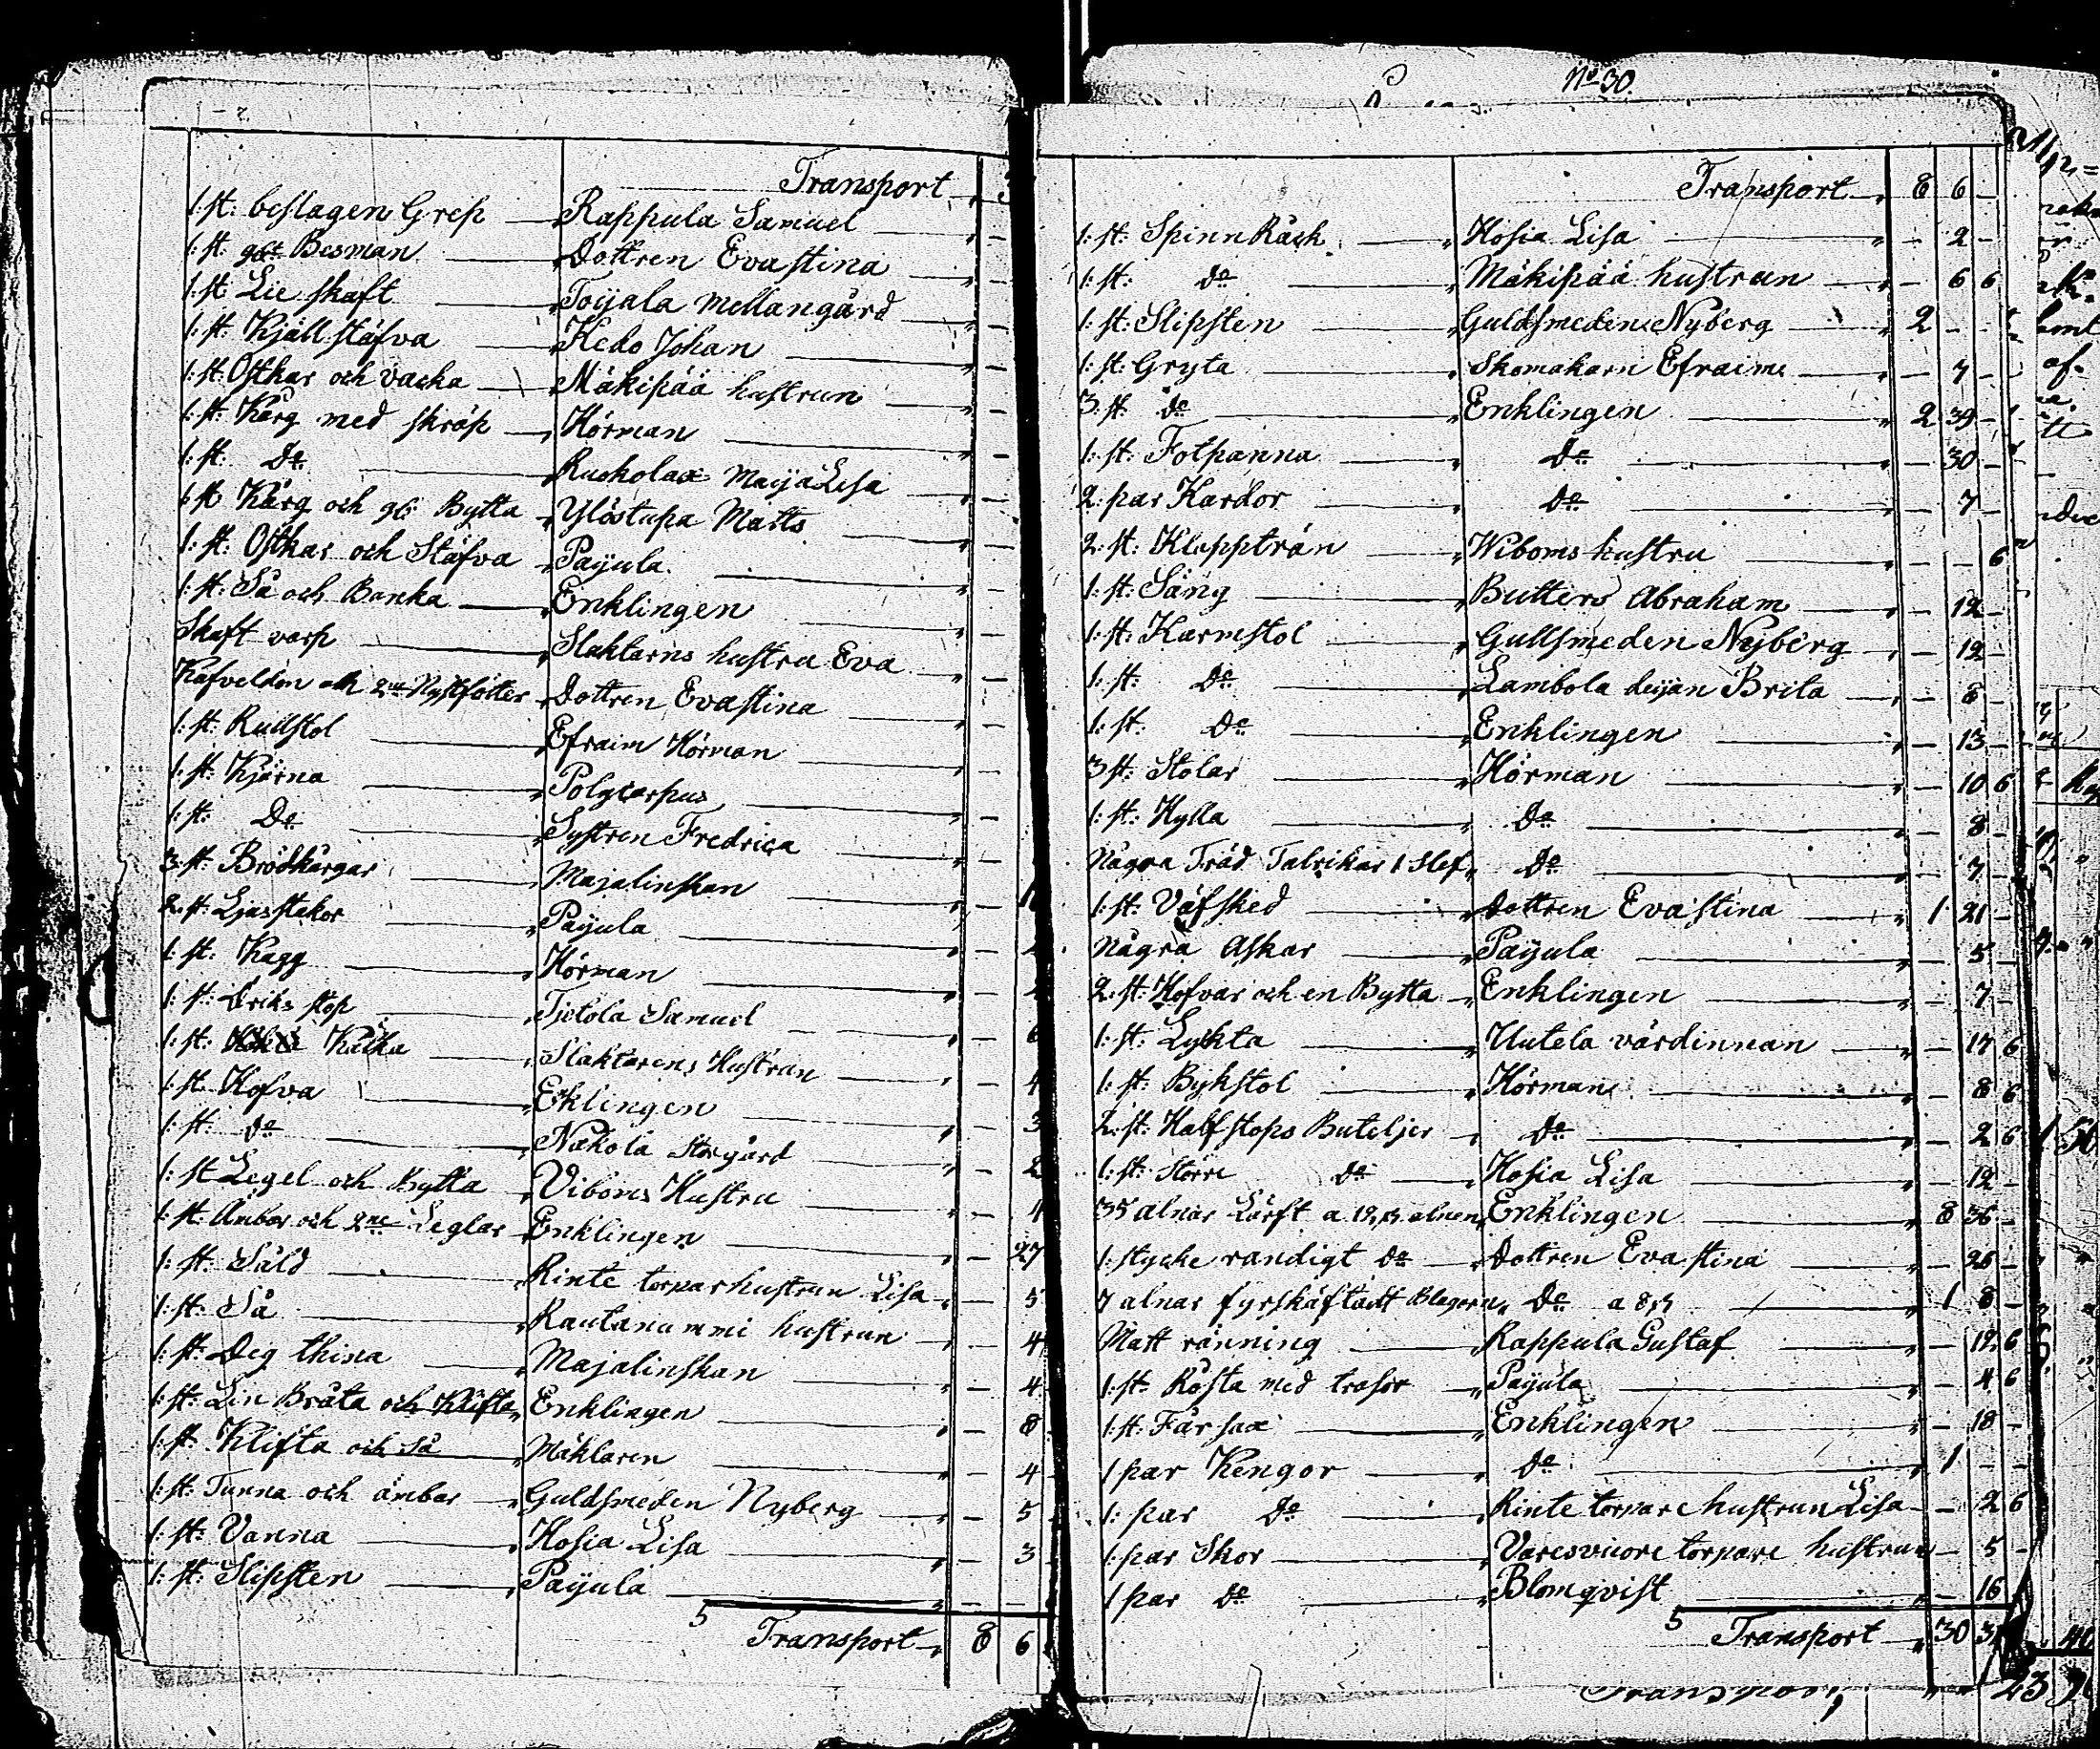 Transport
1: st: beslagen Grep Rappula Samuel
1: st: Besman Dottren Evastina
1: st: Lie skaft Toijala Mellangård
1: st: Kjäll stäfva Kedo Johan
1: st: Ostkar och vacka Mäkipää hustrun
1: st: Kärg med skräp Hörman
1: st: Do Ruokolax Maija Lisa
1: st: Kärg och Bytta Ylöstupa Matts
1: st: Ostkar och Stäfva Paijula
1: st: Så och Banka Enklingen
Skaft varp Slaktarns hustru Eva
Kafveldon och 2ne Nystfötter Dottren Evastina
1: st: Rullstol Efraim Hörman
1: st: Kjärna Polycarpus
1: st: Do Systren Fredrica
3: st: Brödkärgar Majalinskan
2: st: Ljusstakor Paijula
1: st: Kagg Hörman
1: st: Driks stop Tjetola Samuel 6
1: st: Kacka Slaktarens Hustrun 4
1: st: Hofva Eklingen 3
1: st: Do Nakola Storgård 2
1: st Legel och Bytta Viboms Hustru 4
1: st: Ämbar och 2ne Leglar Enklingen 27
1: st: Såld Rinte torparhustrun Lisa 5
1: st: Så Rautanummi hustrun 4
1: st: Deg thina Majalinskan 4
1: st: Lin Bråta och Klifta Enklingen 8
1: st: Klifta och Så Mäklaren 4
1: st: Tunna och ämbar Guldsmeden Nyberg 5
1: st: Vanna Hosia Lisa 3
1: st: Slipsten Paijula
5
Transport 8 6
No 30.
Transport 8 6 –
1: st: Spinn Råck Hosia Lisa – 2 –
1: st: Do Mäkipää hustrun – 6 6
1: st: Slipsten Guldsmeden Nyberg 2 – –
1: st: Gryta Skomakarn Efraims – 7 –
3: st: Do Enklingen 2 39 –
1: st: Fotpanna Do – 30 –
2: par Kardor Do – 7 –
2: st: Klappträn Wiboms hustru – – 6
1: st: Säng Butters Abraham – 12 –
1: st: Karmstol Gullsmeden Nyberg – 12 –
1: st: Do Lambola deijan Brita – 8 –
1: st: Do Enklingen – 13 –
3 st: Stolar Hörman – 10 6
1: st: Hylla Do – 8 –
Några Träd Fabrikar 1 Slef Do – 7 –
1: st: Väfsked Dottren Evastina 1 21 –
Några Askar Paijula – 5 –
2: st: Hofvar och en Bytta Enklingen – 7 –
1: st: Lykta Uutela värdinnan – 17 6
1: st: Bykstol Hörman – 8 6
2: st: Halfstops Buteljer Do – 2 6
1: st: Större Do Hosia Lisa – 12 –
35 alnar Lärft a 12 alnen Enklingen 8 36 –
1: stycke randigt Do Dottren Evastina – 26 –
7 alnar fyrskäftadt Do a 8 1 8 –
Matt ränning Rappula Gustaf – 12 6
1: st: Rösta med trasor Paijula – 4 6
1 st: Får sax Enklingen – 18 –
1 par Kengor Do 1 – –
1: par Do Rinte torpare hustrun Lisa – 2 6
1: par Skor Varesvuore torpare hustrun – 5 –
1 par Do Blomqvist – 16
5
Transport 30